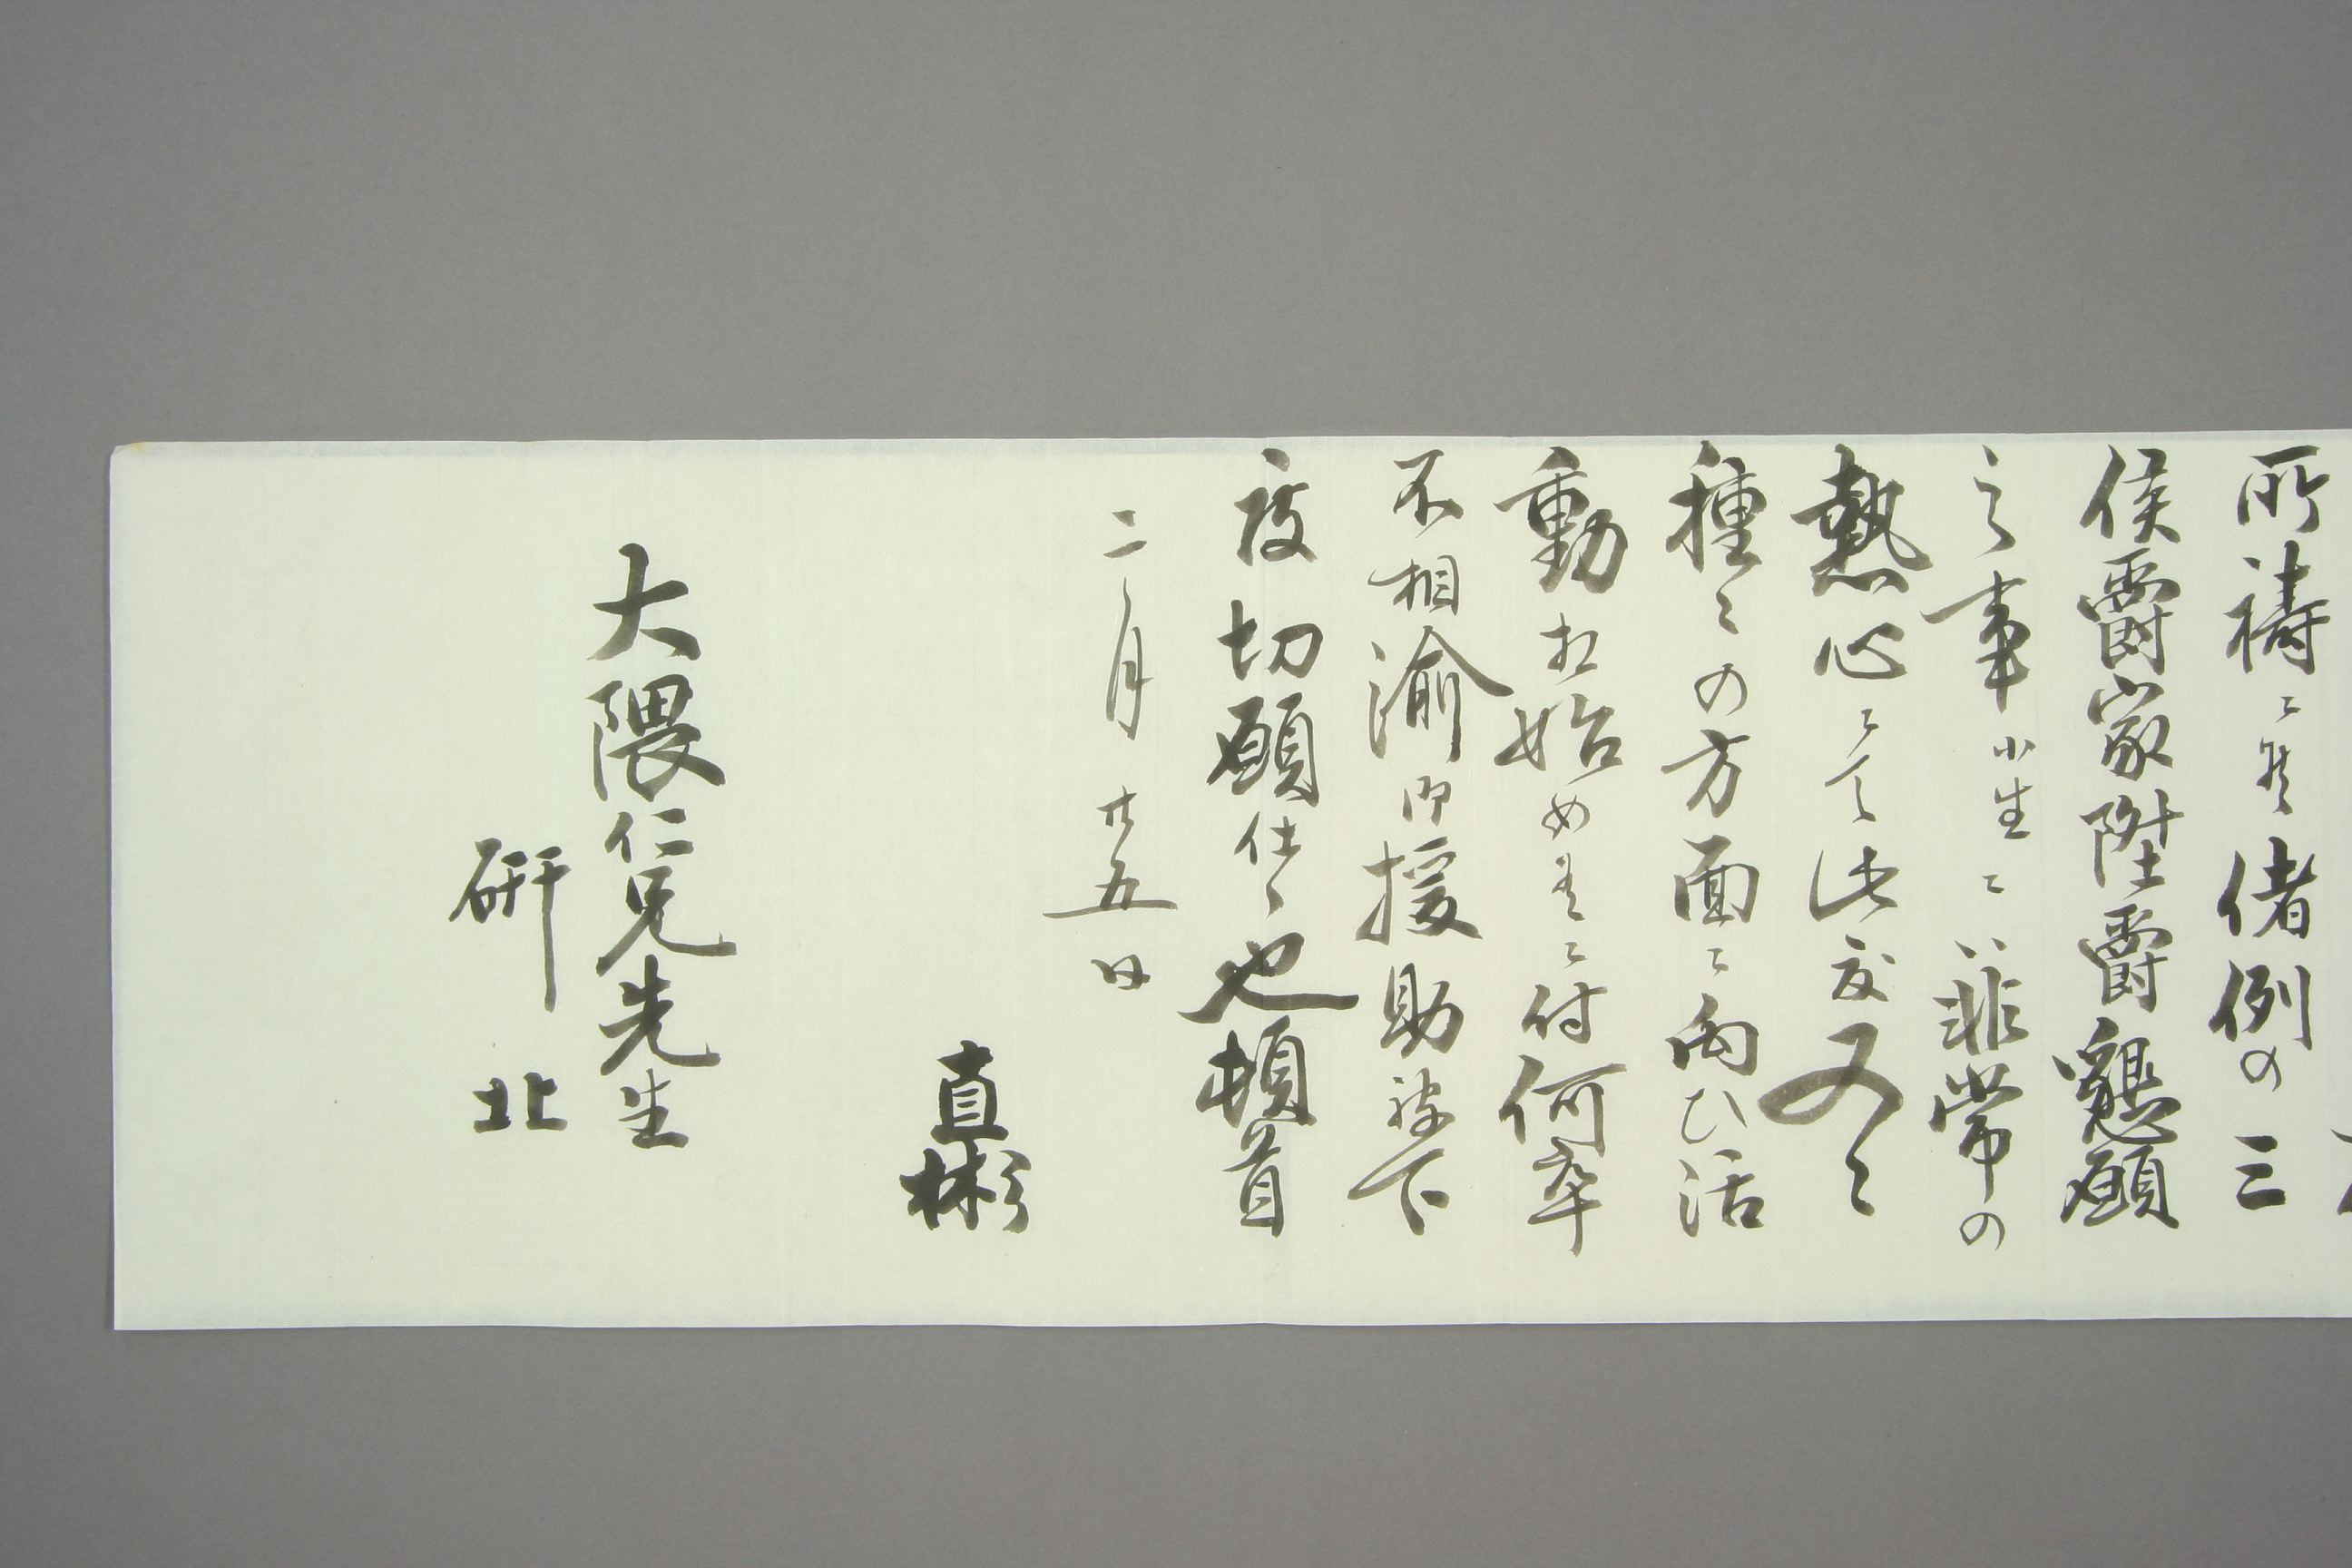 所祷ニ候偖例の三
侯爵家陞爵懇願
之事小生ニハ非常の
熱心ニて此度又々
種々の方面ニ向ひ活
動相始め候ニ付何卒
不相渝御援助被下
度切願仕候也頓首
二月廿五日
直彬
大隈仁兄先生
研北